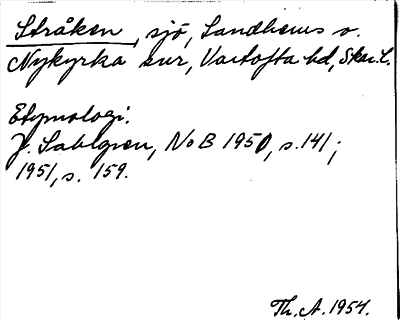 Stråken, sjö, Sandhems o.
Nykyrka snr, Vartofta hd, Skar. l.
Etymologi:
J. Sahlgren, NoB 1950, s. 141;
1951, s. 159.
Th. A. 1954.